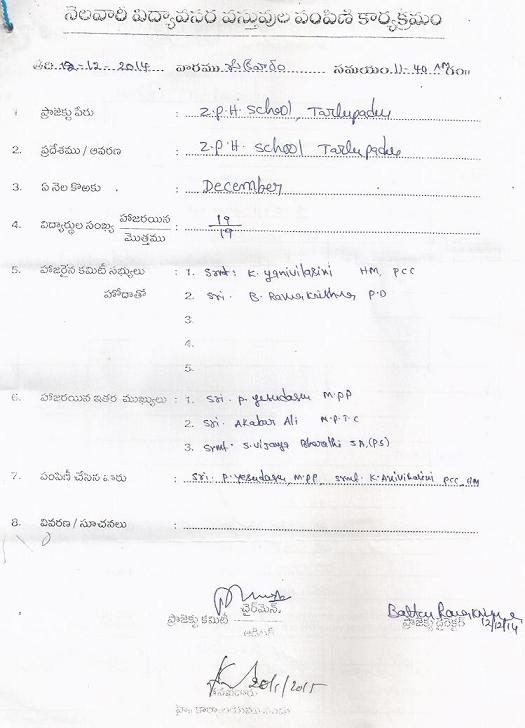 నెలవారీ విద్యావసర వస్తువుల పంపిణీ కార్యక్రమం
తేది 12-12-2014 వారము శుక్రవారం సమయం 11-40
1 ప్రాజెక్టు పేరు : Z.P.H School, Tarlupadu
2. ప్రదేశము / ఆవరణ : Z.P.H. School Tarlupadu
3. ఏ నెల కొఱకు : December
4. విద్యార్థుల సంఖ్య హాజరయిన / మొత్తము : 19 / 19
5. హాజరైన కమిటీ సభ్యులు : 1. Smt: K. HM, PCC
హోదాతో 2. Sri. B. Ramakrishna P.D
3.
4.
5.
6. హాజరయిన ఇతర ముఖ్యులు : 1. Sri. P. Yesudasu M.P.P
2. Sri. Akabar Ali M.P.T.C
3. Smt: S. Vijaya Bharathi S.A.(P.S)
7. పంపిణీ చేసిన వారు : Sri. P. Yesudasu, M.P.P, Smt. K. PCC, HM
8. వివరణ / సూచనలు :
ప్రాజెక్టు కమిటీ ఛైర్మెన్
ప్రాజెక్టు డైరెక్టర్ 12/12/14
ఆడిటర్
20/1/2015